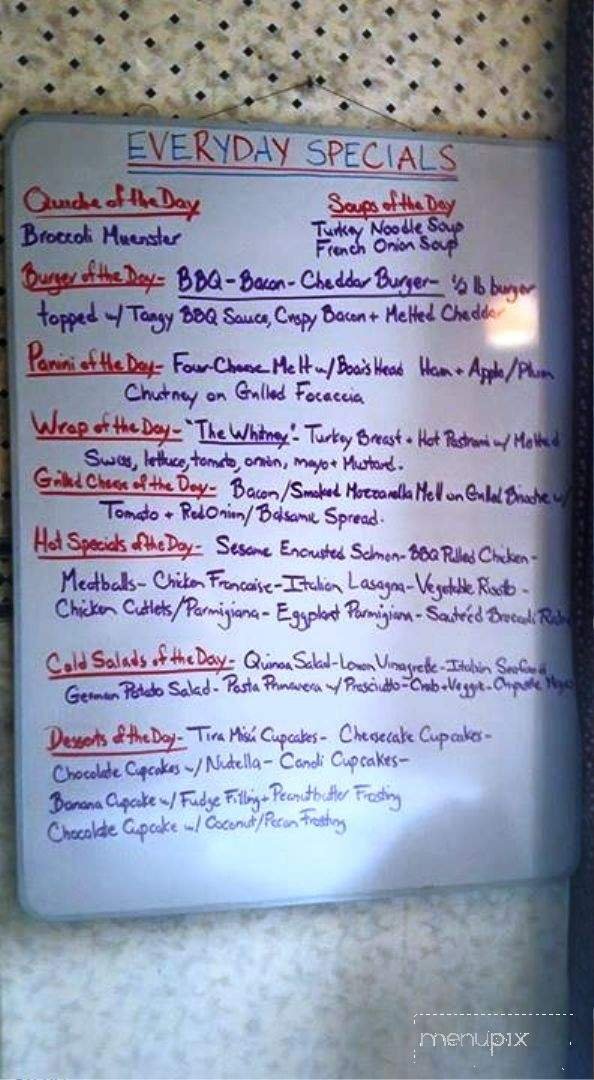 EVERYDAY SPECIALS
Quiche of the Day
Broccoli Muenster
Soups of the Day
Turkey Noodle Soup
French Onion Soup
Burger of the Day- BBQ-Bacon-Cheddar Burger- 1/2 lb burger
topped w/ Tangy BBQ Sauce, Crispy Bacon + Melted Cheddar
Panini of the Day- Four-Cheese Melt w/ Boar's Head Ham + Apple/Plum
Chutney on Grilled Focaccia
Wrap of the Day- "The Whitney"- Turkey Breast + Hot Pastrami w/ Melted
Swiss, lettuce, tomato, onion, mayo + Mustard.
Grilled Cheese of the Day- Bacon/Smoked Mozzarella Melt on Grilled Brioche w/
Tomato + Red Onion/ Balsamic Spread.
Hot Specials of the Day- Sesame Encrusted Salmon- BBQ Pulled Chicken-
Meatballs- Chicken Francaise- Italian Lasagna- Vegetable Risotto -
Chicken Cutlets/Parmigiana- Eggplant Parmigiana- Sautéed Broccoli
Cold Salads of the Day- Quinoa Salad-Lemon Vinagrette- Italian Seafood
German Potato Salad- Pasta Primavera w/ Prosciutto- Crab+Veggie- Chipotle
Desserts of the Day- Tira Misú Cupcakes- Cheesecake Cupcakes-
Chocolate Cupcakes w/ Nutella- Canoli Cupcakes-
Banana Cupcake w/ Fudge Filling + Peanutbutter Frosting
Chocolate Cupcake w/ Coconut/Pecan Frosting
menupix